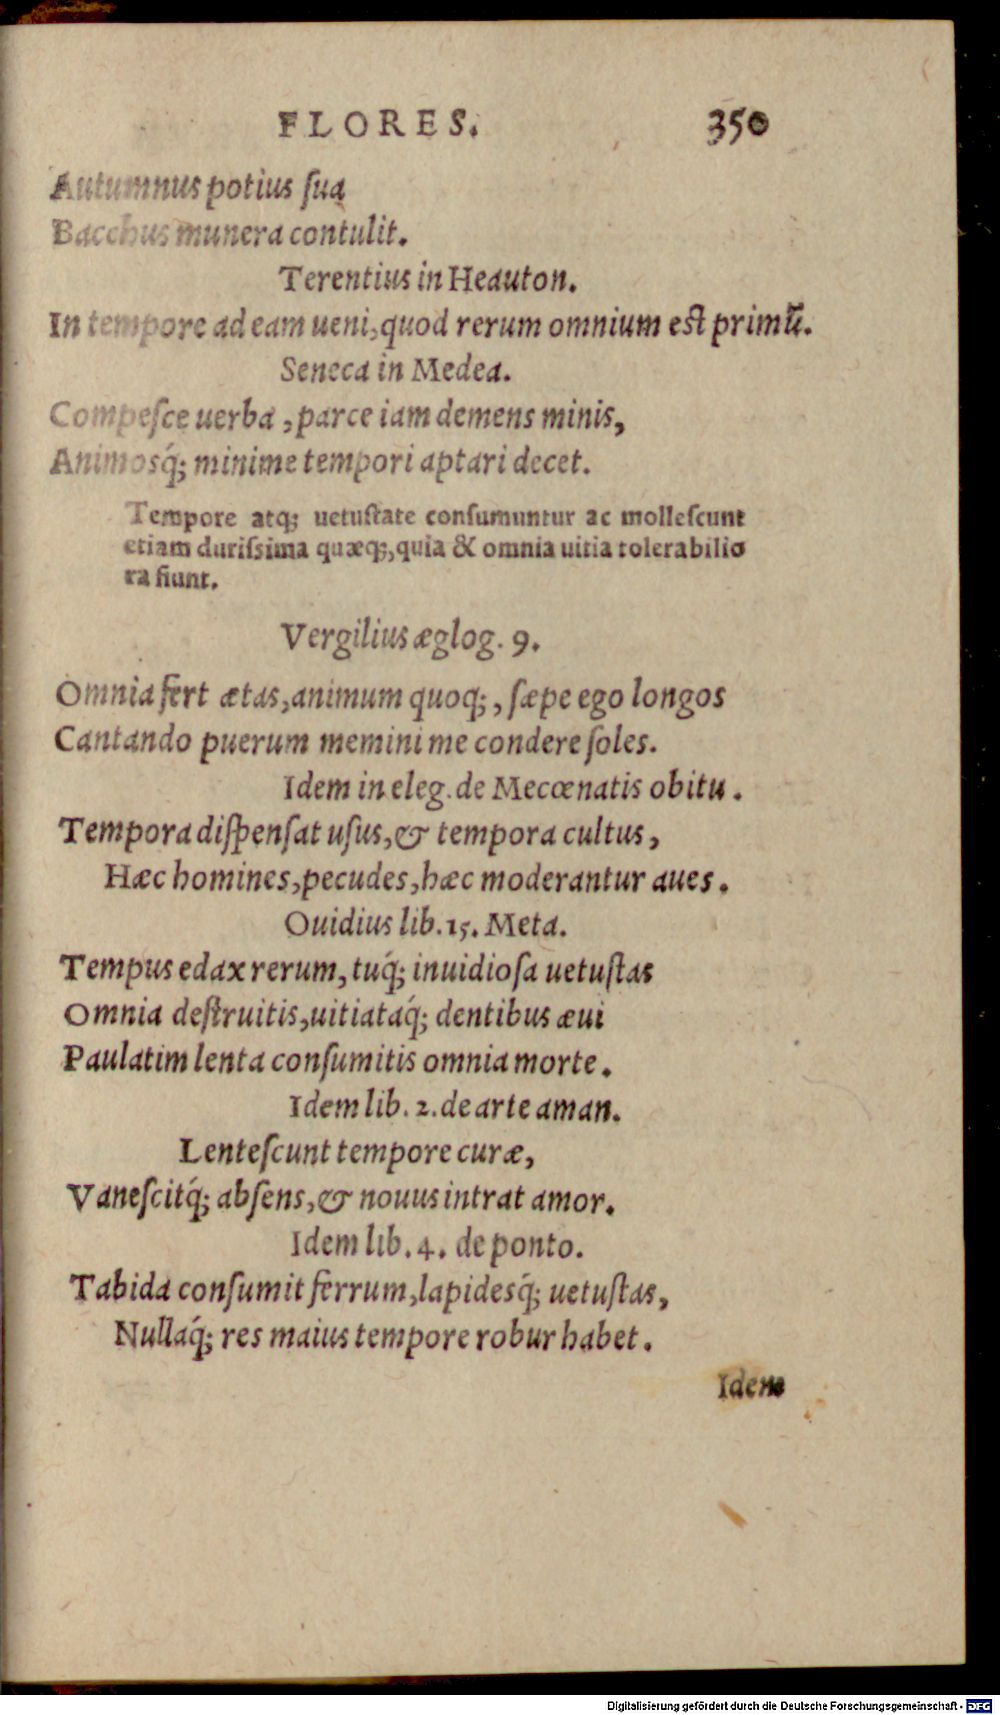 FLORES. 350
Autumnus potius ſua
Bacchus munera contulit.
Terentius in Heauton.
In tempore ad eam ueni, quod rerum omnium est primū.
Seneca in Medea.
Compeſce uerba, parce iam demens minis,
Animosq́; minime tempori aptari decet.
Tempore atq; uetuſtate conſumuntur ac molleſcunt
etiam duriſsima quæq;, quia & omnia uitia tolerabilio
ra fiunt.
Vergilius æglog. 9.
Omnia fert ætas, animum quoq;, ſæpe ego longos
Cantando puerum memini me condere ſoles.
Idem in eleg. de Mecœnatis obitu.
Tempora diſpenſat uſus, & tempora cultus,
Hæc homines, pecudes, hæc moderantur aues.
Ouidius lib. 15. Meta.
Tempus edax rerum, tuq́; inuidioſa uetuſtas
Omnia deſtruitis, uitiataq́; dentibus æui
Paulatim lenta conſumitis omnia morte.
Idem lib. 2. de arte aman.
Lenteſcunt tempore curæ,
Vaneſcitq́; abſens, & nouus intrat amor.
Idem lib. 4. de ponto.
Tabida conſumit ferrum, lapidesq́; uetuſtas,
Nullaq́; res maius tempore robur habet.
Idem
Digitalisierung gefördert durch die Deutsche Forschungsgemeinschaft - DFG